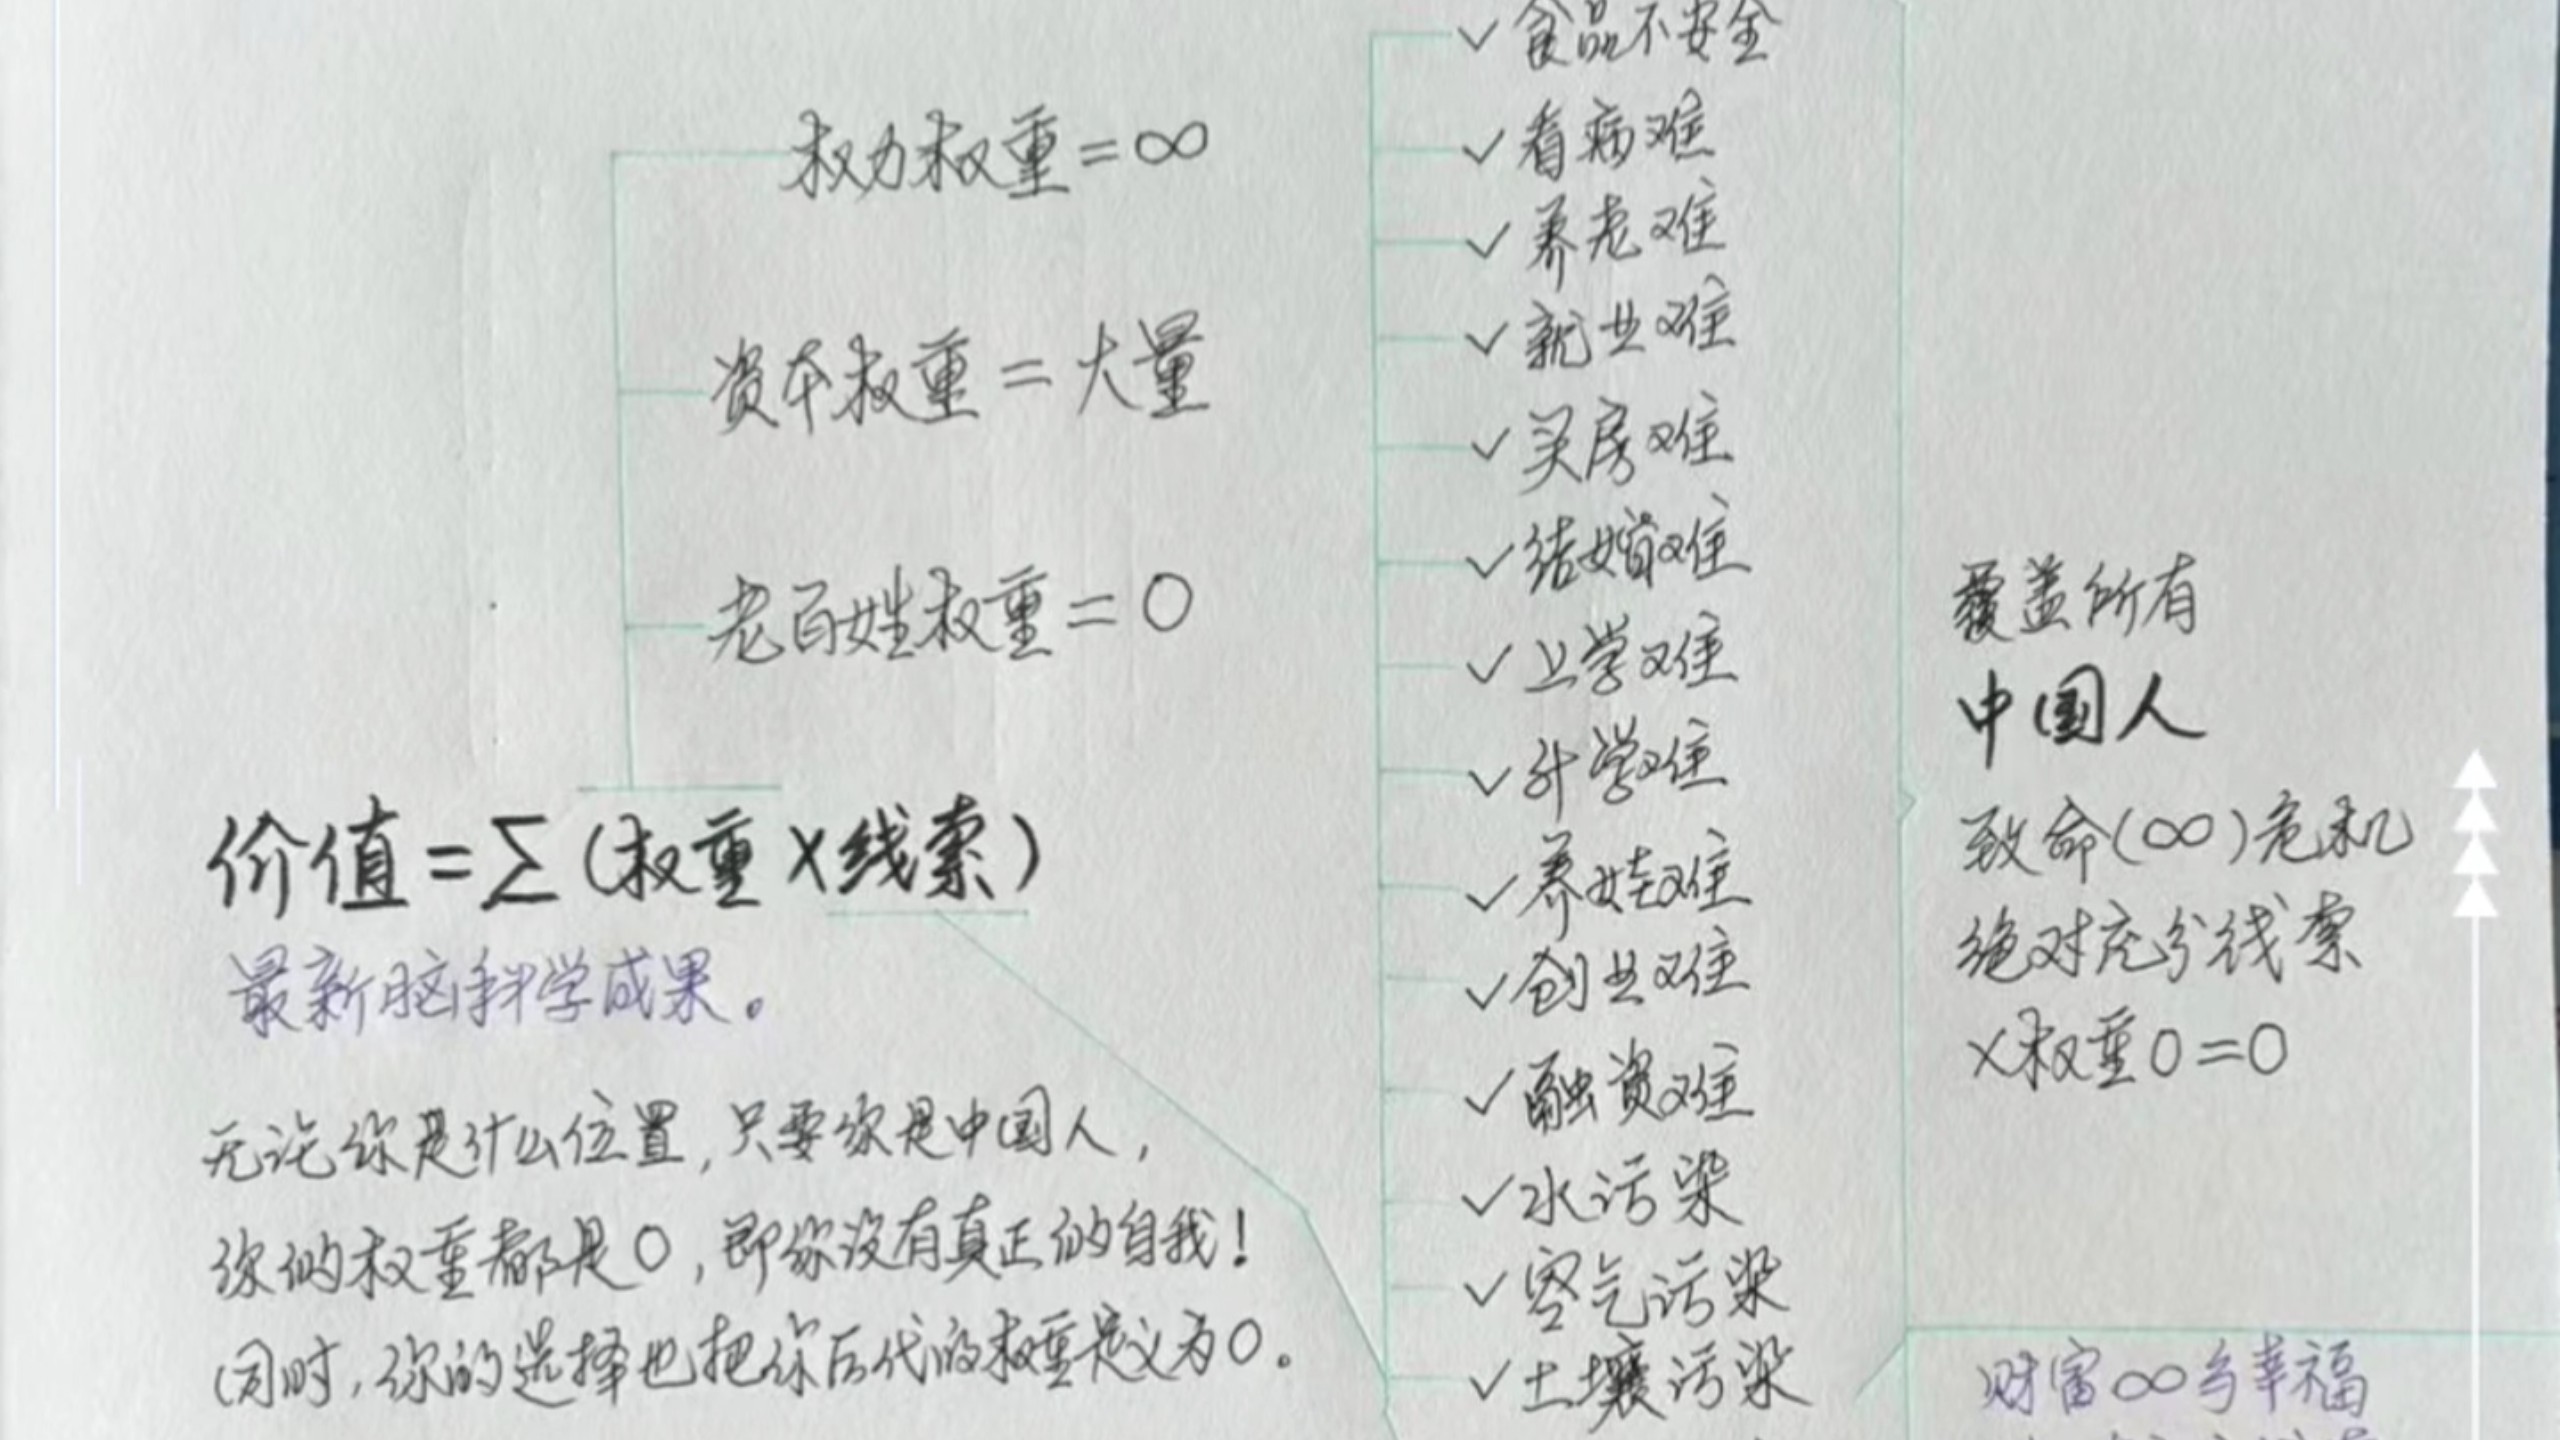 权力权重=∞
资本权重=大量
老百姓权重=0
价值=∑(权重×线索)
最新脑科学成果。
无论你是什么位置,只要你是中国人,
你的权重都是0,即你没有真正的自我!
同时,你的选择也把你后代的权重定义为0。
✓食品不安全
✓看病难
✓养老难
✓就业难
✓买房难
✓结婚难
✓上学难
✓升学难
✓养娃难
✓创业难
✓融资难
✓水污染
✓空气污染
✓土壤污染
覆盖所有
中国人
致命(∞)危机
绝对充分线索
×权重0=0
财富∞与幸福